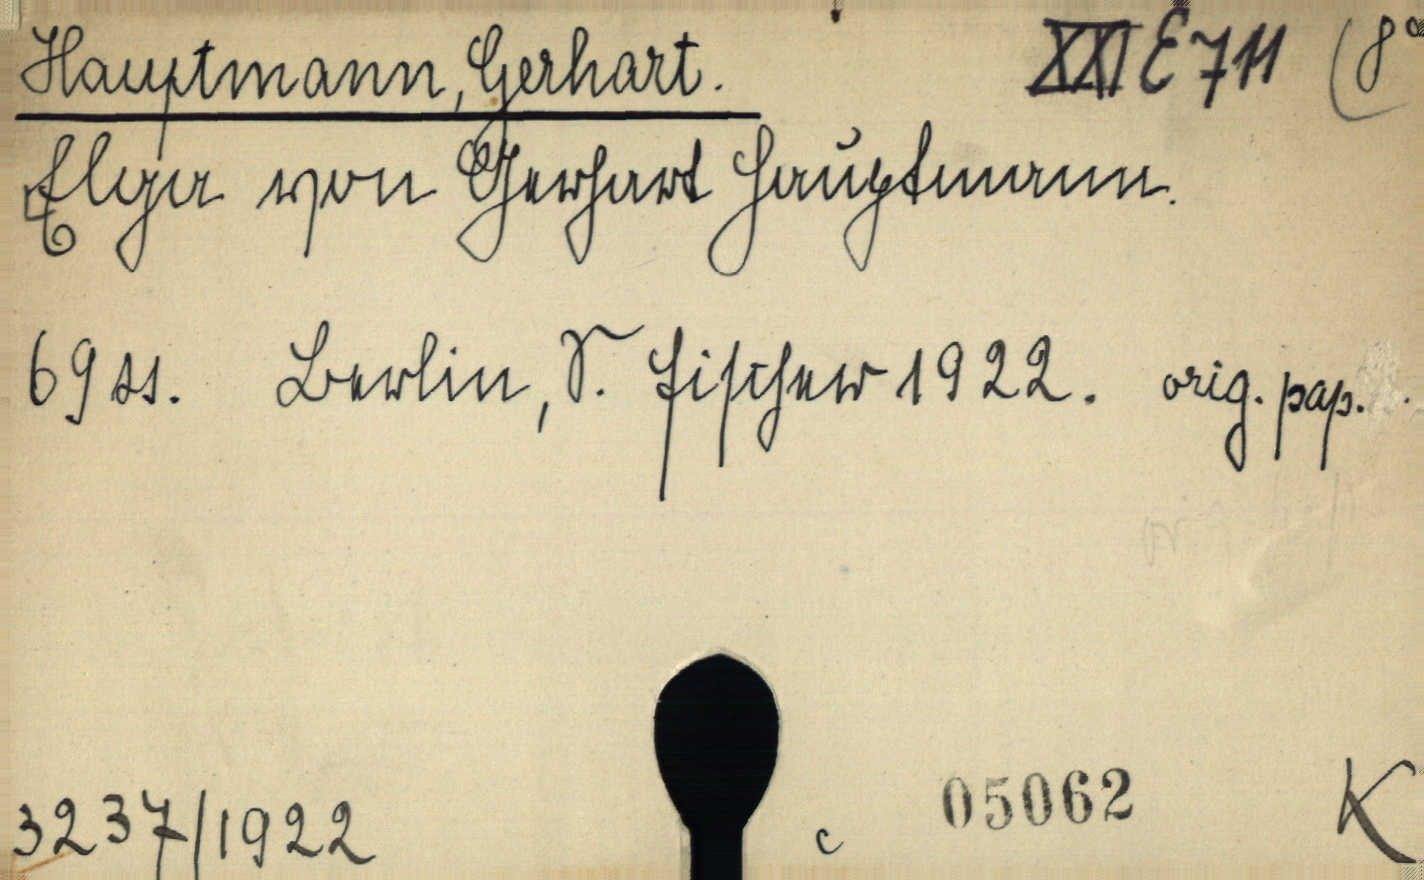 Hauptmann, Gerhart. XXI E 711 (8°
Elga von Gerhart Hauptmann.
69 ss. Berlin, S. Fischer 1922. orig. pap.
3237/1922 c 05062 K